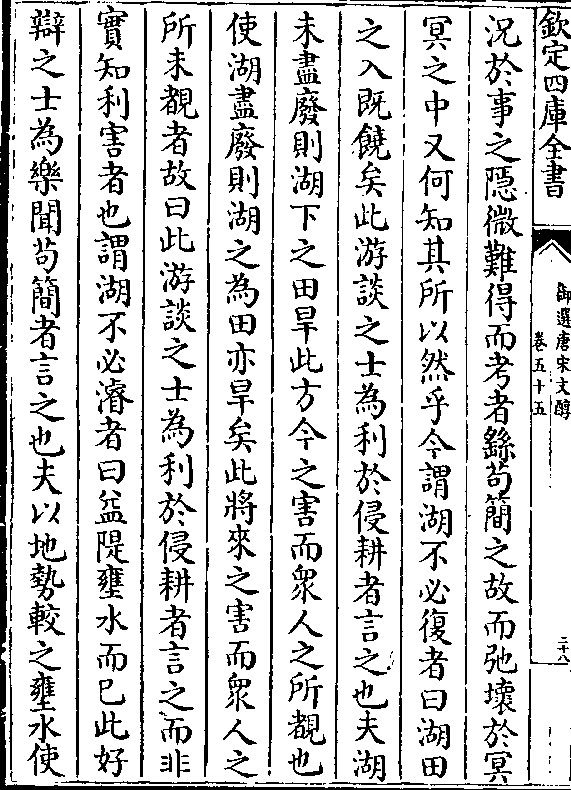 欽定四庫全書
御選唐宋文醇
卷五十五
二十八
況於事之隱微難得而考者繇苟簡之故而弛壞於冥
冥之中又何知其所以然乎今謂湖不必復者曰湖田
之入既饒矣此游談之士為利於侵耕者言之也夫湖
未盡廢則湖下之田旱此方今之害而衆人之所覩也
使湖盡廢則湖之為田亦旱矣此將來之害而衆人之
所未覩者故曰此游談之士為利於侵耕者言之而非
實知利害者也謂湖不必濬者曰益隄壅水而已此好
辯之士為樂聞苟簡者言之也夫以地勢較之壅水使